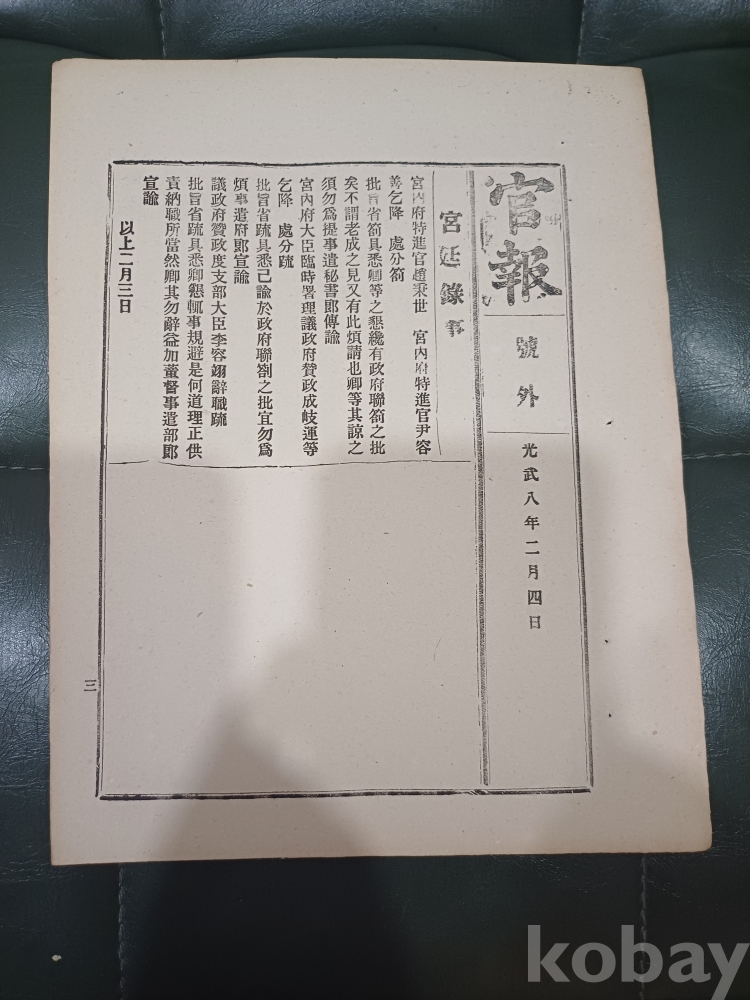 官報
號外
光武八年二月四日
宮廷錄事
宮內府特進官趙秉世　宮內府特進官尹容
善乞降　處分箚
批旨省箚具悉卿等之懇纔有政府聯箚之批
矣不謂老成之見又有此煩請也卿等其諒之
須勿爲提事遣秘書郞傳諭
宮內府大臣臨時署理議政府贊政成岐運等
乞降　處分疏
批旨省疏具悉已諭於政府聯箚之批宜勿爲
煩事遣府郞宣諭
議政府贊政度支部大臣李容翊辭職疏
批旨省疏具悉卿懇輒事規避是何道理正供
責納職所當然卿其勿辭益加董督事遣部郞
宣諭
以上二月三日
三
kobay